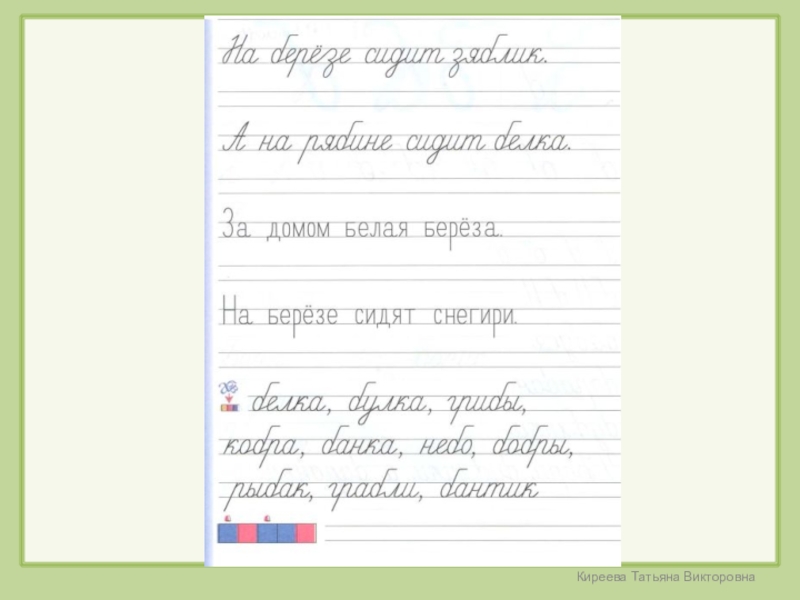 На берёзе сидит зяблик.
А на рябине сидит белка.
За домом белая берёза.
На берёзе сидят снегири.
белка, булка, грибы,
кобра, банка, небо, бобры,
рыбак, грабли, бантик
Киреева Татьяна Викторовна